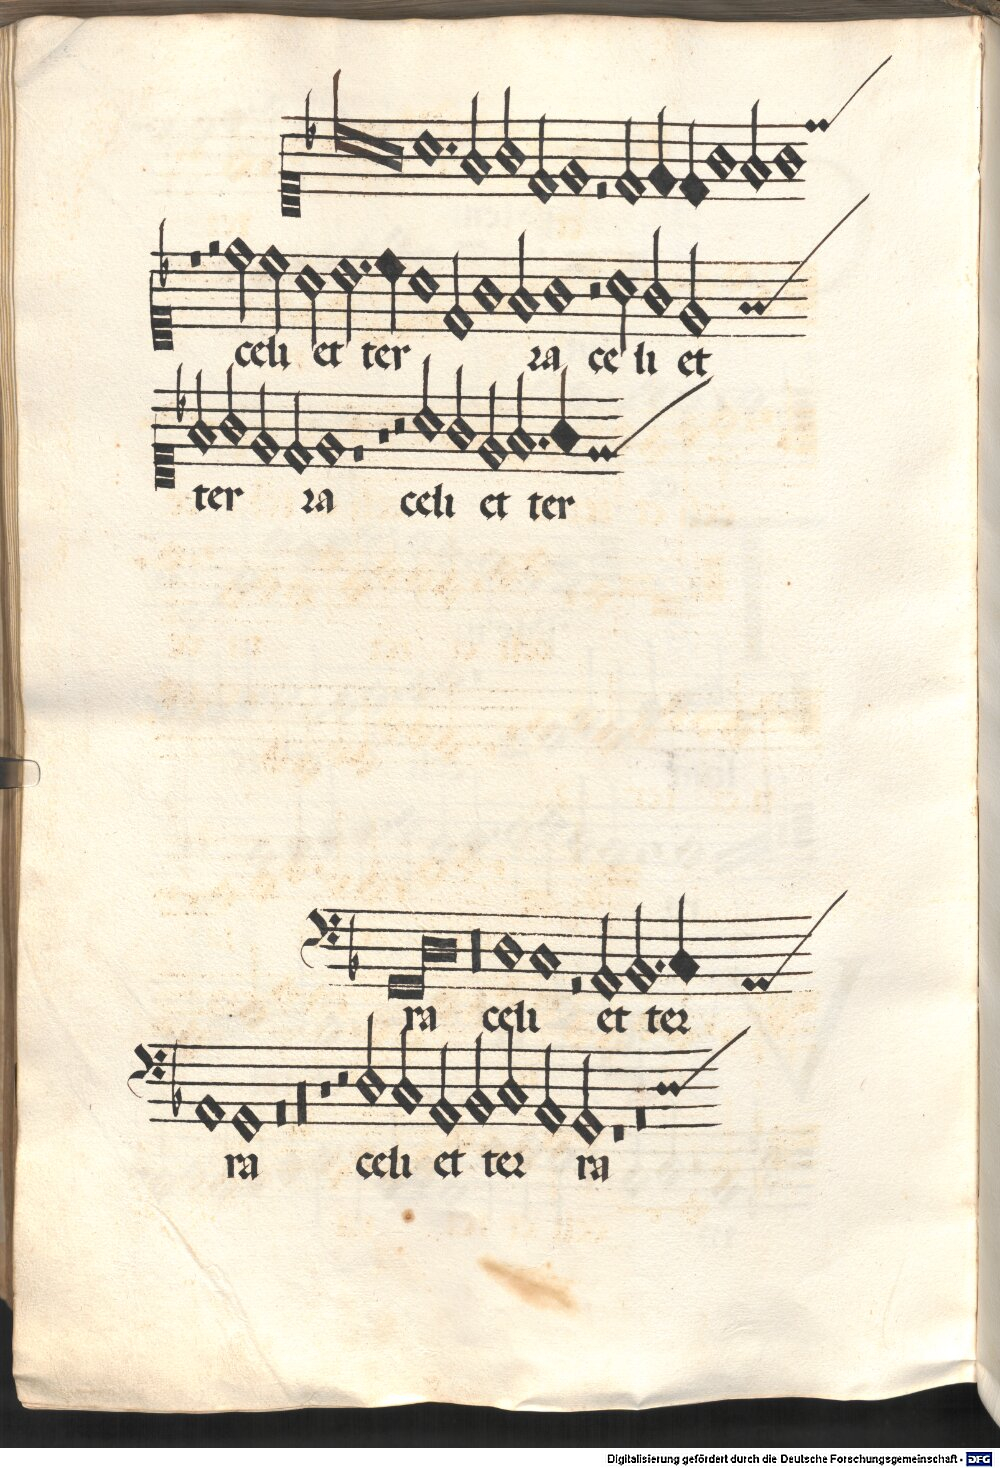 celi et ter ra ce li et
ter ra celi et ter
ra celi et ter
ra celi et ter ra
Digitalisierung gefördert durch die Deutsche Forschungsgemeinschaft - DFG